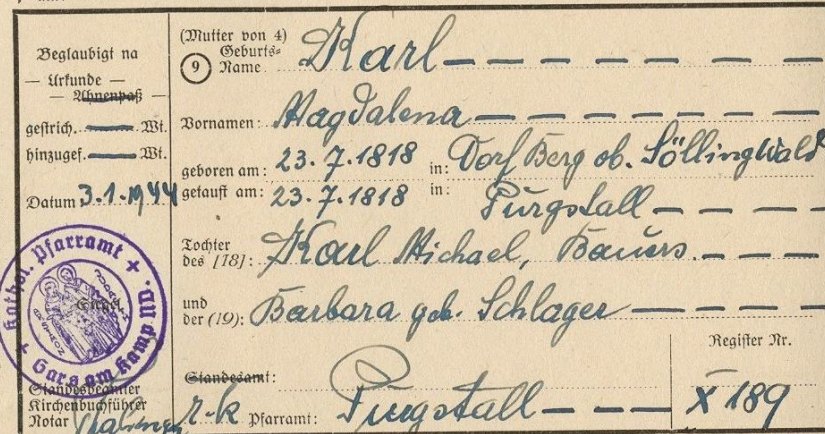 Beglaubigt na
— Urkunde —
— Ahnenpaß —
gestrich. Wt.
hinzugef. Wt.
Datum: 3.1.1944
Kathol. Pfarramt + Gars am Kamp, ND. +
Standesbeamter
Kirchenbuchführer
Notar
(Mutter von 4)
9 Geburts-Name Karl
Vornamen: Magdalena
geboren am: 23.7.1818 in: Dorf Berg ob. Söllingwald
getauft am: 23.7.1818 in: Purgstall
Tochter des [18]: Karl Michael, Bauers.
und der (19): Barbara geb. Schlager
Standesamt:
r.k Pfarramt: Purgstall
Register Nr.
X 189